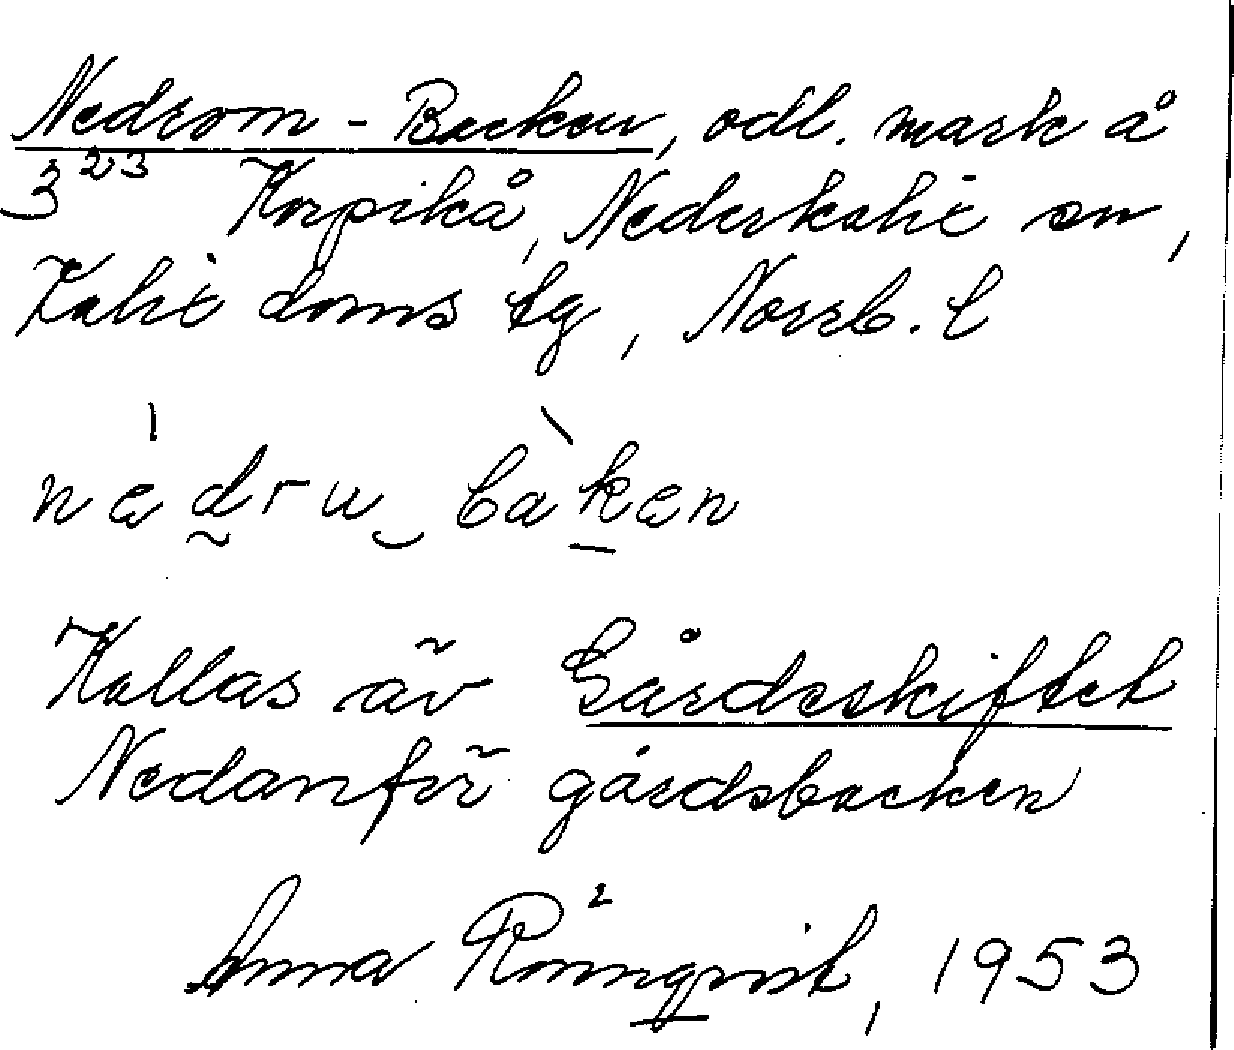 Nedrom-Backen, odl. mark å
3²³ Korpikå, Nederkalix sn,
Kalix doms tg, Norrb. l
nedru baken
Kallas äv Gårdsskiftet
Nedanför gårdsbacken
Anna Rönnqvist, 1953